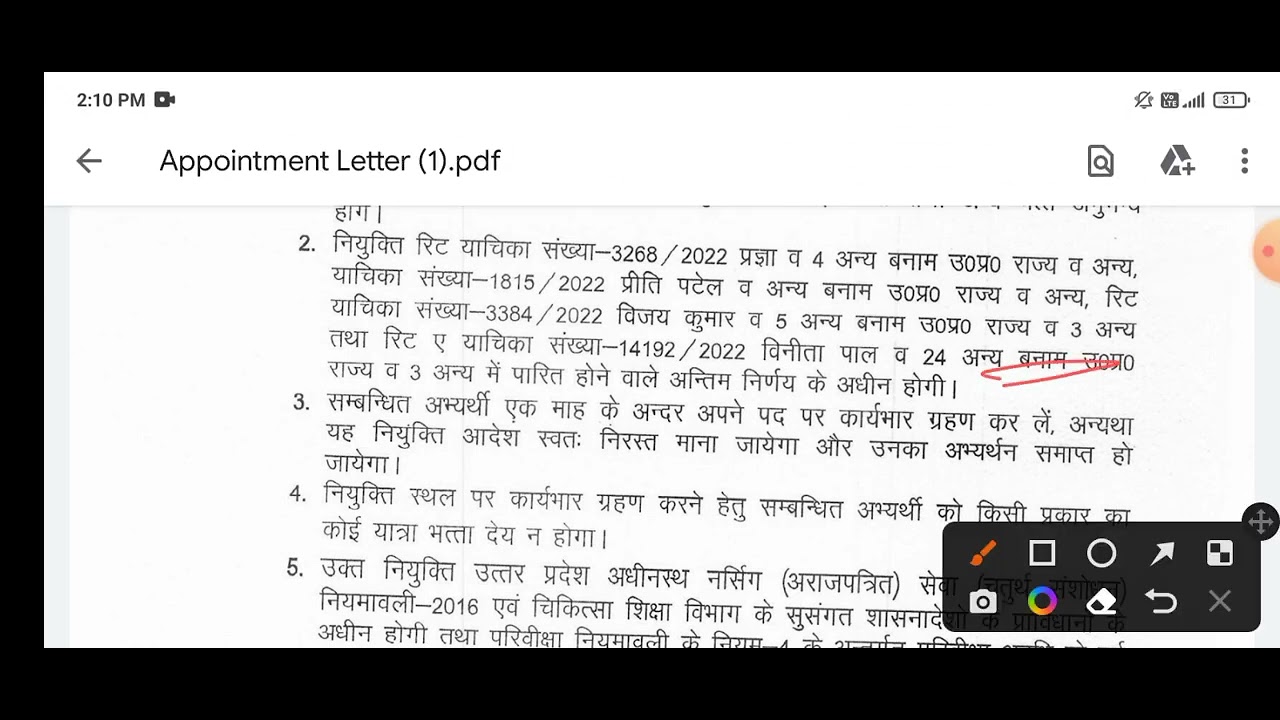 2:10 PM
Vo LTE
31
Appointment Letter (1).pdf
होंगे।
2. नियुक्ति रिट याचिका संख्या–3268/2022 प्रज्ञा व 4 अन्य बनाम उ0प्र0 राज्य व अन्य,
याचिका संख्या–1815/2022 प्रीति पटेल व अन्य बनाम उ0प्र0 राज्य व अन्य, रिट
याचिका संख्या–3384/2022 विजय कुमार व 5 अन्य बनाम उ0प्र0 राज्य व 3 अन्य
तथा रिट ए याचिका संख्या–14192/2022 विनीता पाल व 24 अन्य बनाम उ0प्र0
राज्य व 3 अन्य में पारित होने वाले अन्तिम निर्णय के अधीन होगी।
3. सम्बन्धित अभ्यर्थी एक माह के अन्दर अपने पद पर कार्यभार ग्रहण कर लें, अन्यथा
यह नियुक्ति आदेश स्वतः निरस्त माना जायेगा और उनका अभ्यर्थन समाप्त हो
जायेगा।
4. नियुक्ति स्थल पर कार्यभार ग्रहण करने हेतु सम्बन्धित अभ्यर्थी को किसी प्रकार का
कोई यात्रा भत्ता देय न होगा।
5. उक्त नियुक्ति उत्तर प्रदेश अधीनस्थ नर्सिंग (अराजपत्रित) सेवा (चतुर्थ संशोधन)
नियमावली–2016 एवं चिकित्सा शिक्षा विभाग के सुसंगत शासनादेशों के प्राविधानों के
अधीन होगी तथा परिवीक्षा नियमावली के नियम–4 के अन्तर्गत